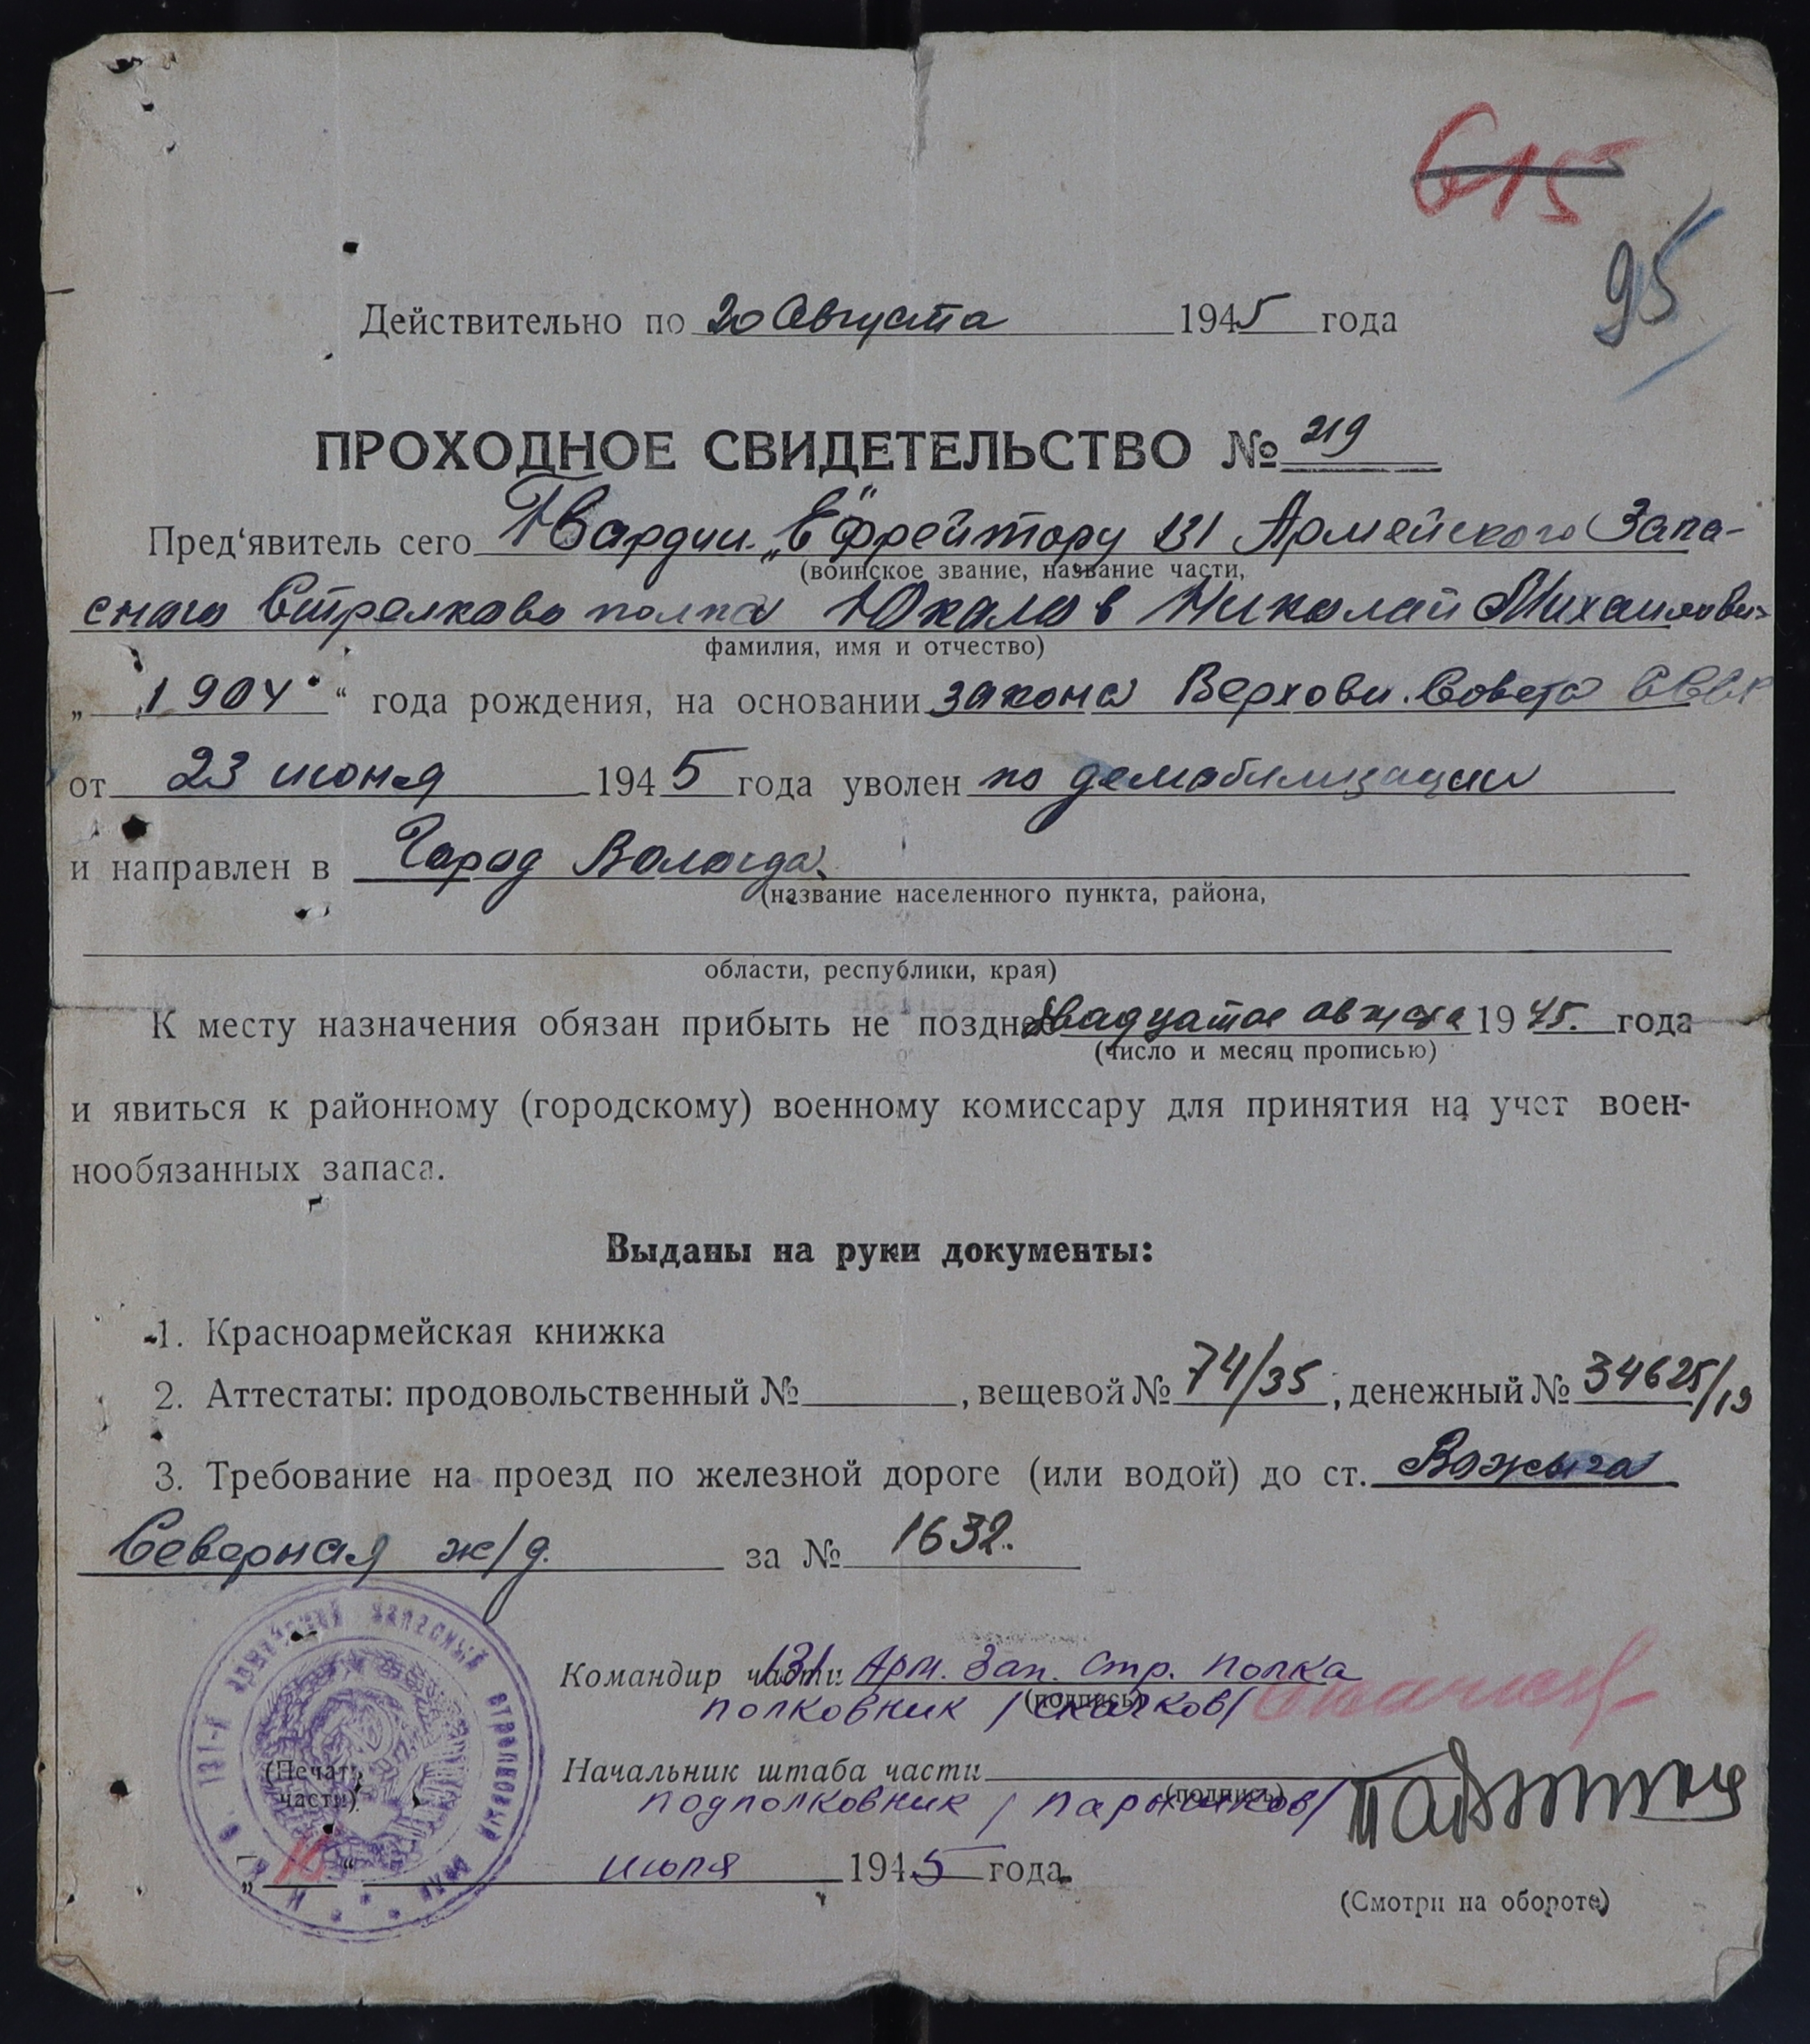 615
95
Действительно по 20 Августа 1945 года
ПРОХОДНОЕ СВИДЕТЕЛЬСТВО № 219
Пред‘явитель сего Гвардии „Ефрейтору 131 Армейского Запа-
(воинское звание, название части,
сного Стрелково полка Юкалов Николай Михайлови-
фамилия, имя и отчество)
„ 1904 “ года рождения, на основании закона Верховн. Совета СССР
от 23 июня 1945 года уволен по демобилизации
и направлен в Город Вологда
(название населенного пункта, района,
области, республики, края)
К месту назначения обязан прибыть не позднее двадцатое августа 1945. года
(число и месяц прописью)
и явиться к районному (городскому) военному комиссару для принятия на учет воен-
нообязанных запаса.
Выданы на руки документы:
1. Красноармейская книжка
2. Аттестаты: продовольственный №, вещевой № 74/35, денежный № 34625/19
3. Требование на проезд по железной дороге (или водой) до ст. Вожега
Северная ж/д. за № 1632.
Командир части 131 Арм. Зап. Стр. полка
(подпись)
полковник / Скачков/
Начальник штаба части
(подпись)
подполковник /
(Печать
части)
131-й армейский запасный стрелковый полк
июля 1945 года.
(Смотри на обороте)